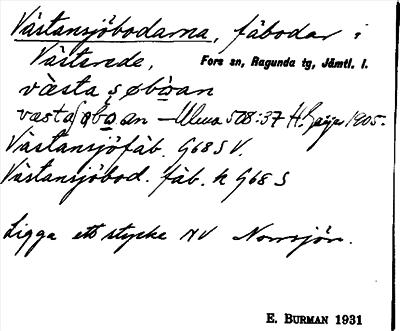 Västansjöbodarna, fäbodar i
Västerede, Fors sn, Ragunda tg, Jämtl. l.
västa ʂøbòan
vastaʃøbo an – Ulma 508:37 H. Geijer 1905.
Västansjöfäb. G68 S V.
Västansjöbod. fäb. k G68 S
Ligga ett stycke NV Norrsjön.
E. BURMAN 1931